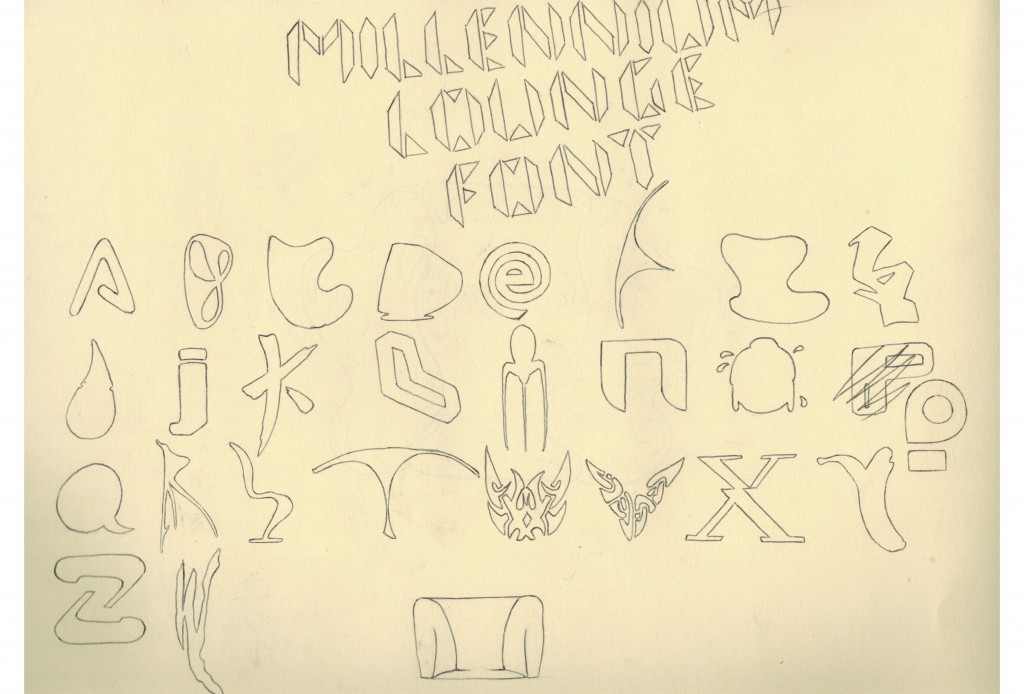 MILLENNIUM
LOUNGE
FONT
A B C D e F H
j K L M n O P P
Q R S T U V X Y
Z W